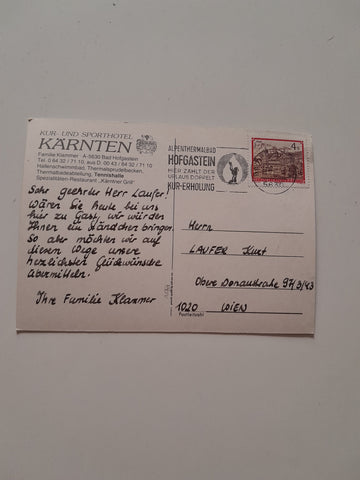 KUR- UND SPORTHOTEL
KÄRNTEN
Familie Klammer A-5630 Bad Hofgastein
Tel. 0 64 32 / 71 10, aus D: 00 43 / 64 32 / 71 10
Hallenschwimmbad, Thermalsprudelbecken,
Thermalbadeabteilung, Tennishalle
Spezialitäten-Restaurant „Kärntner Grill"
Sehr geehrter Herr Laufer!
Wären Sie heute bei uns
hier zu Gast, wir würden
Ihnen ein Ständchen bringen.
So aber möchten wir auf
diesem Wege unsere
herzlichsten Glückwünsche
übermitteln.
Ihre Familie Klammer
ALPENTHERMALBAD
HOFGASTEIN
HIER ZÄHLT DER
URLAUB DOPPELT
KUR-ERHOLUNG
4
Herrn
LAUFER Kurt
Obere Donaustraße 97/3/43
1020 WIEN
Postleitzahl